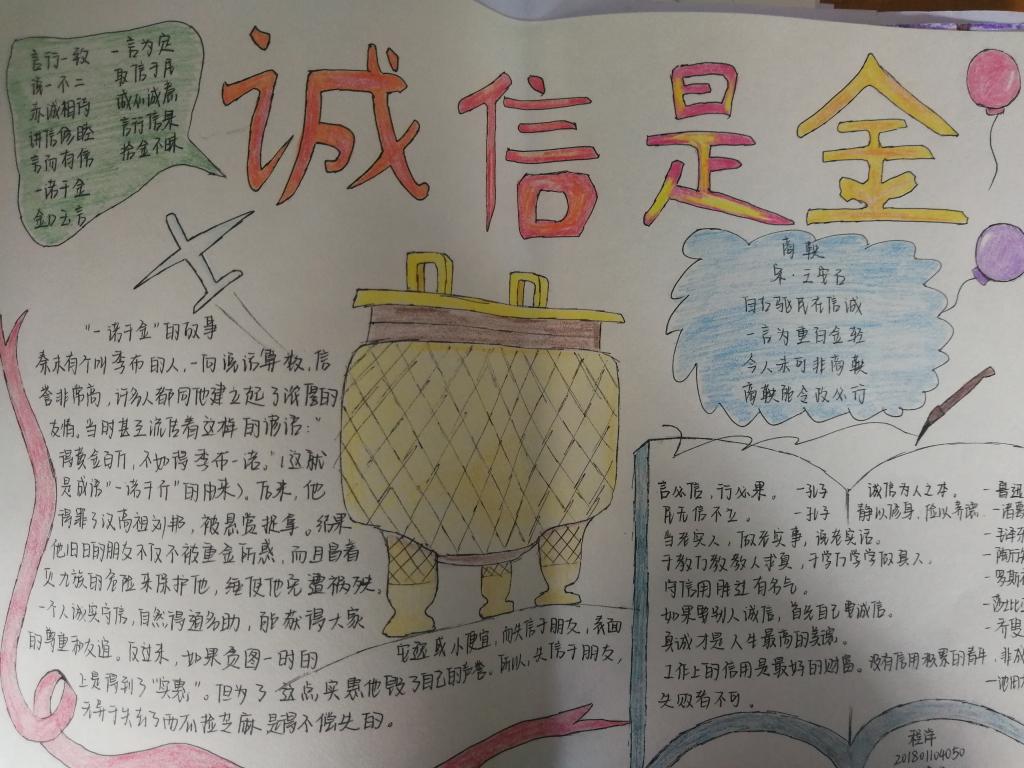 诚信是金
言行一致
说一不二
赤诚相待
讲信修睦
言而有信
一诺千金
金口玉言
一言为定
取信于民
诚心诚意
言行信果
拾金不昧
商鞅
宋·王安石
自古驱民在信诚
一言为重百金轻
今人未可非商鞅
商鞅能令政必行
“一诺千金”的故事
秦末有个叫季布的人，一向说话算数，信
誉非常高，许多人都同他建立起了浓厚的
友情。当时甚至流传着这样的谚语：“
得黄金百斤，不如得季布一诺。”（这就
是成语“一诺千斤”的由来）。后来，他
得罪了汉高祖刘邦，被悬赏捉拿。结果
他旧日的朋友不仅不被重金所惑，而且冒着
灭九族的危险来保护他，
一个人诚实守信，自然得道多助，能获得大家
的尊重和友谊。反过来，如果贪图一时的
安逸或小便宜，而失信于朋友，表面
上是得到了“实惠”。但为了这点实惠他毁了自己的声誉。所以，失信于朋友，
无异于失去了西瓜捡芝麻是得不偿失的。
言必信，行必果。 —孔子
民无信不立。 —孔子
当老实人，做老实事，说老实话。
千教万教教人求真，千学万学学做真人。
守信用胜过有名气。
如果要别人诚信，首先自己要诚信。
真诚才是人生最高的美德。
工作上的信用是最好的财富。没有信用积累的青年，非成
失败者不可。
诚信为人之本。 —鲁迅
静以修身，俭以养德。
程萍
201801104050